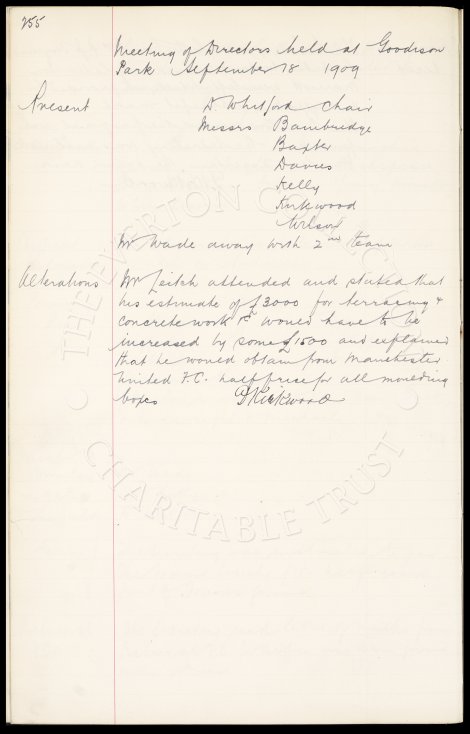 255
Meeting of Directors held at Goodison
Park September 18 1909
Present Dr Whitford Chair
Messrs Bainbridge
Baxter
Davies
Kelly
Kirkwood
Wilson
Mr Wade away with 2nd team
Alterations Mr Leitch attended and stated that
his estimate of £3000 for terracing &
concrete work &c would have to be
increased by some £1500 and explained
that he would obtain from Manchester
United F.C. half price for all moulding
boxes Kirkwood
THE EVERTON CHARITABLE TRUST